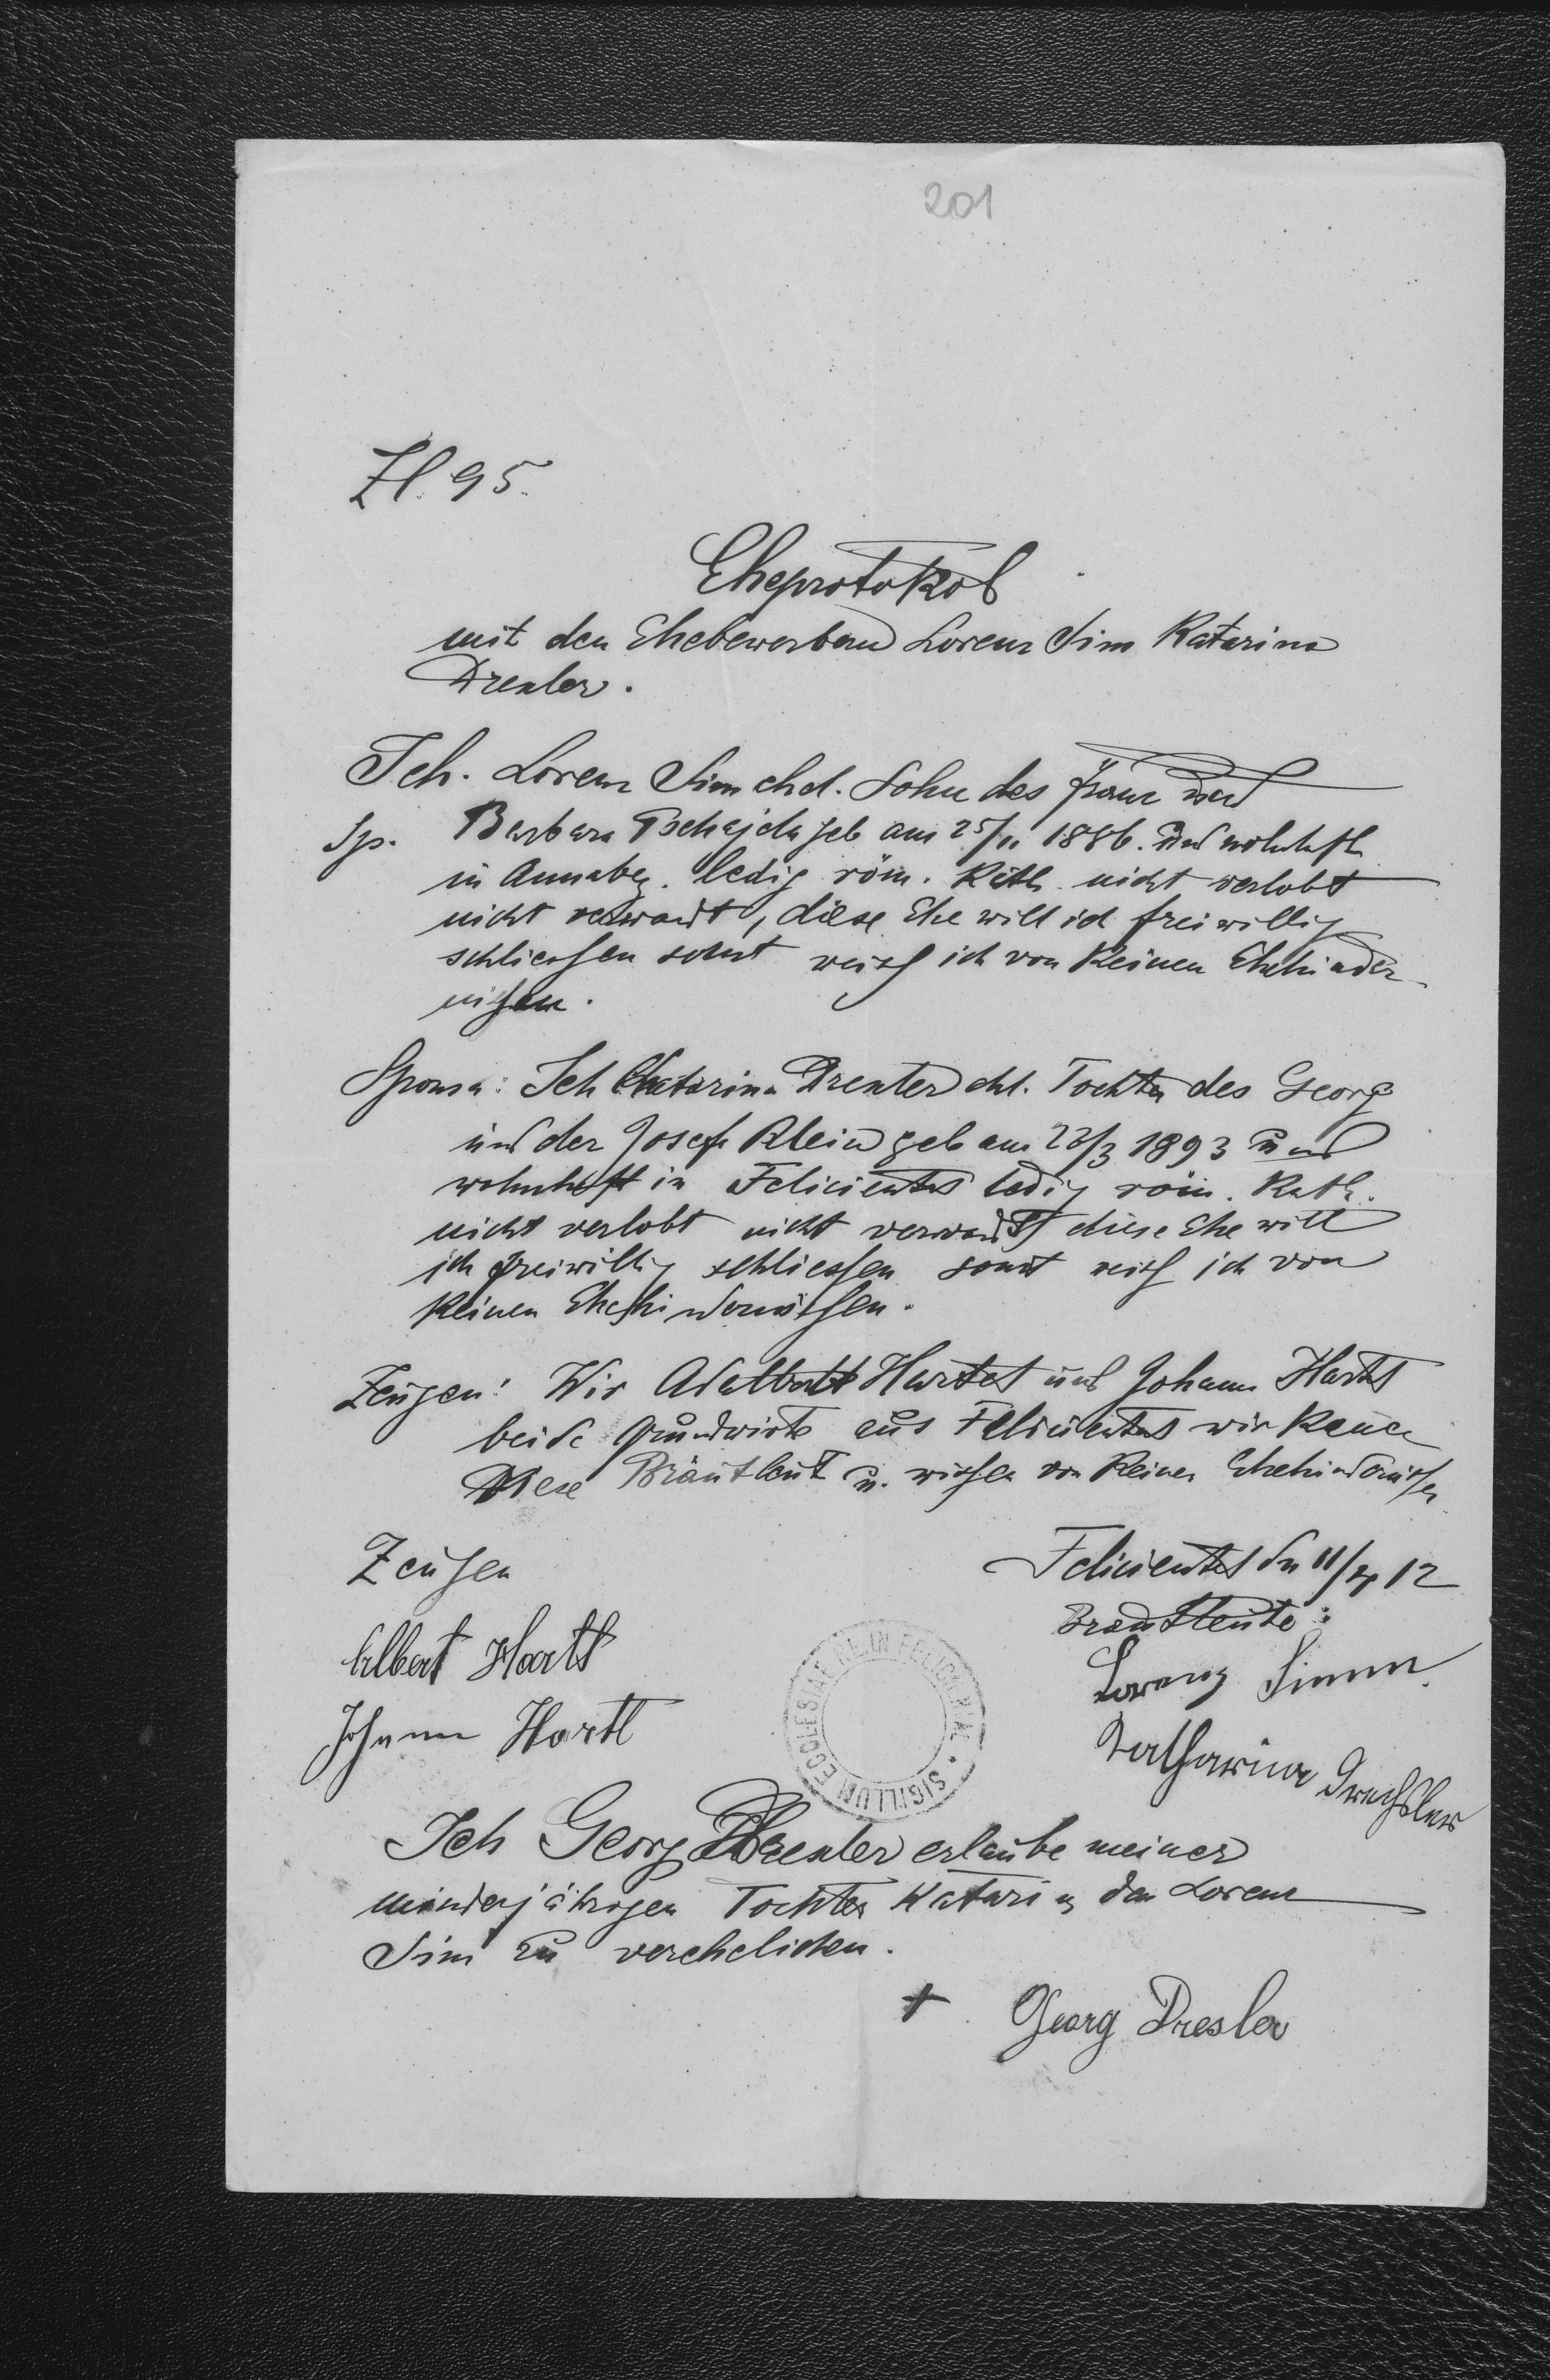 201
Zl. 95.
Eheprotokol
mit den Ehebewerbern Lorenz Sim Katarina
Drexler.
Ich. Lorenz Sim ehel. Sohn des Franz und
Sp. Barbara geb am 25/11 1886. und wohnhaft
in Annabeg. ledig röm. Kath. nicht verlobt
nicht verwandt, diese Ehe will ich freiwillig
schliessen somit weiss ich von keinen Ehehinder-
nissen.
Sponsa: Ich Katarina Drexler ehl. Tochter des Georg
und der Josefa Klein geb am 23/3 1893 und
wohnhaft in Felicienthal ledig röm. Kath.
nicht verlobt nicht verwandt diese Ehe will
ich freiwillig schliessen somit weiss ich von
keinen Ehehindernissen.
Zeugen: Wir Adalbert Hartel und Johann Hartl
beide Grundwirte aus Felicienthal wir kennen
diese Brautleut u. wissen von keinen Ehehindernissen
Zeugen
Felicienthal den 11/ 12
Brautleute:
Albert Hartl
Lorenz Simm.
Johann Hartl
Katharina Drechsler
SIGILLUM ECCLESIAE
Ich Georg Drexler erlaube meiner
minderjährigen Tochter Katarina den Lorenz
Sim zu verehelichen.
+ Georg Dresler